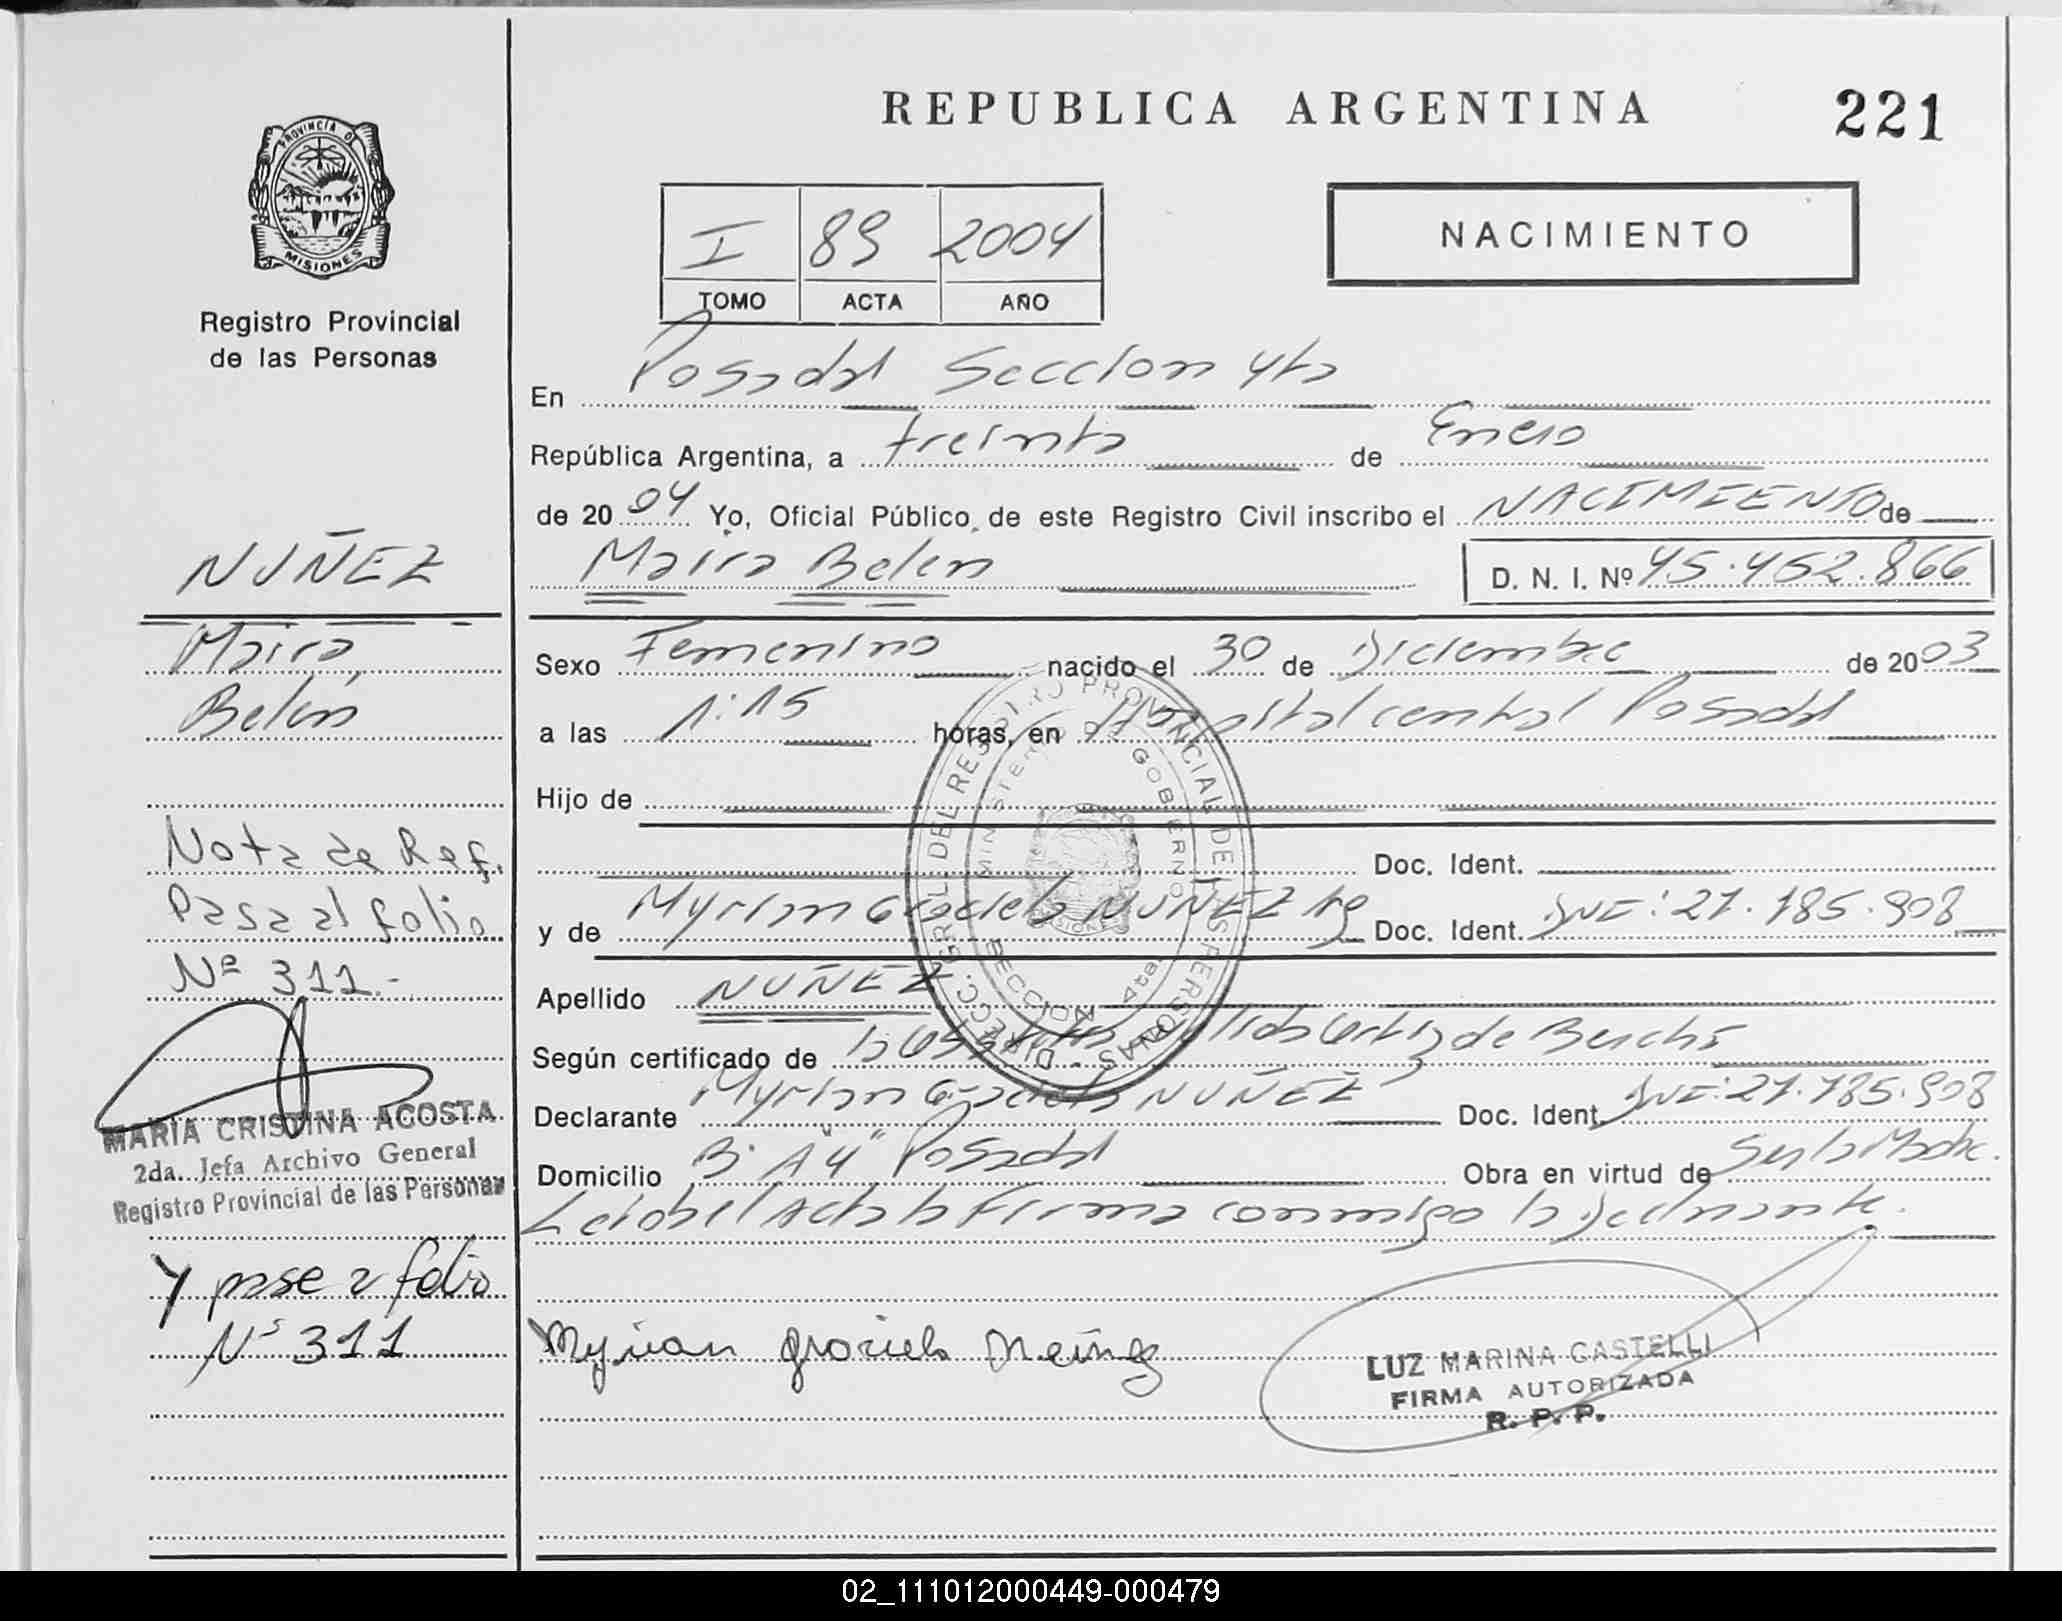 REPUBLICA ARGENTINA
221
PROVINCIA DE
MISIONES
Registro Provincial
de las Personas
I 89 2004
TOMO ACTA AÑO
NACIMIENTO
En Posadas Seccion 4ta
República Argentina, a treinta de Enero
de 2004 Yo, Oficial Público de este Registro Civil inscribo el NACIMIENTO de
Maira Belen D. N. I. Nº 45.452.866
NUÑEZ
Maira
Belén
Sexo Femenino nacido el 30 de Diciembre de 2003
a las 1:15 horas, en Hospital central Posadas
Hijo de
Doc. Ident.
y de Myrian Graciela NUÑEZ Doc. Ident. DNI: 27.185.908
Apellido NUÑEZ
Según certificado de
Declarante Myrian Graciela NUÑEZ Doc. Ident. DNI: 27.185.908
Domicilio B° A4 Posadas Obra en virtud de Ser la Madre.
Leida el Acta la Firma conmigo la declarante.
DIRECC. GRAL. DEL REGISTRO PROVINCIAL DE LAS PERSONAS
MINISTERIO DE GOBIERNO
SECCION 4ta
Nota de Ref.
Pasa al folio
Nº 311.-
MARIA CRISTINA ACOSTA
2da. Jefa Archivo General
Registro Provincial de las Personas
Y pase a folio
Nº 311
Myrian Graciela Nuñez
LUZ MARINA CASTELLI
FIRMA AUTORIZADA
R. P. P.
02_111012000449-000479